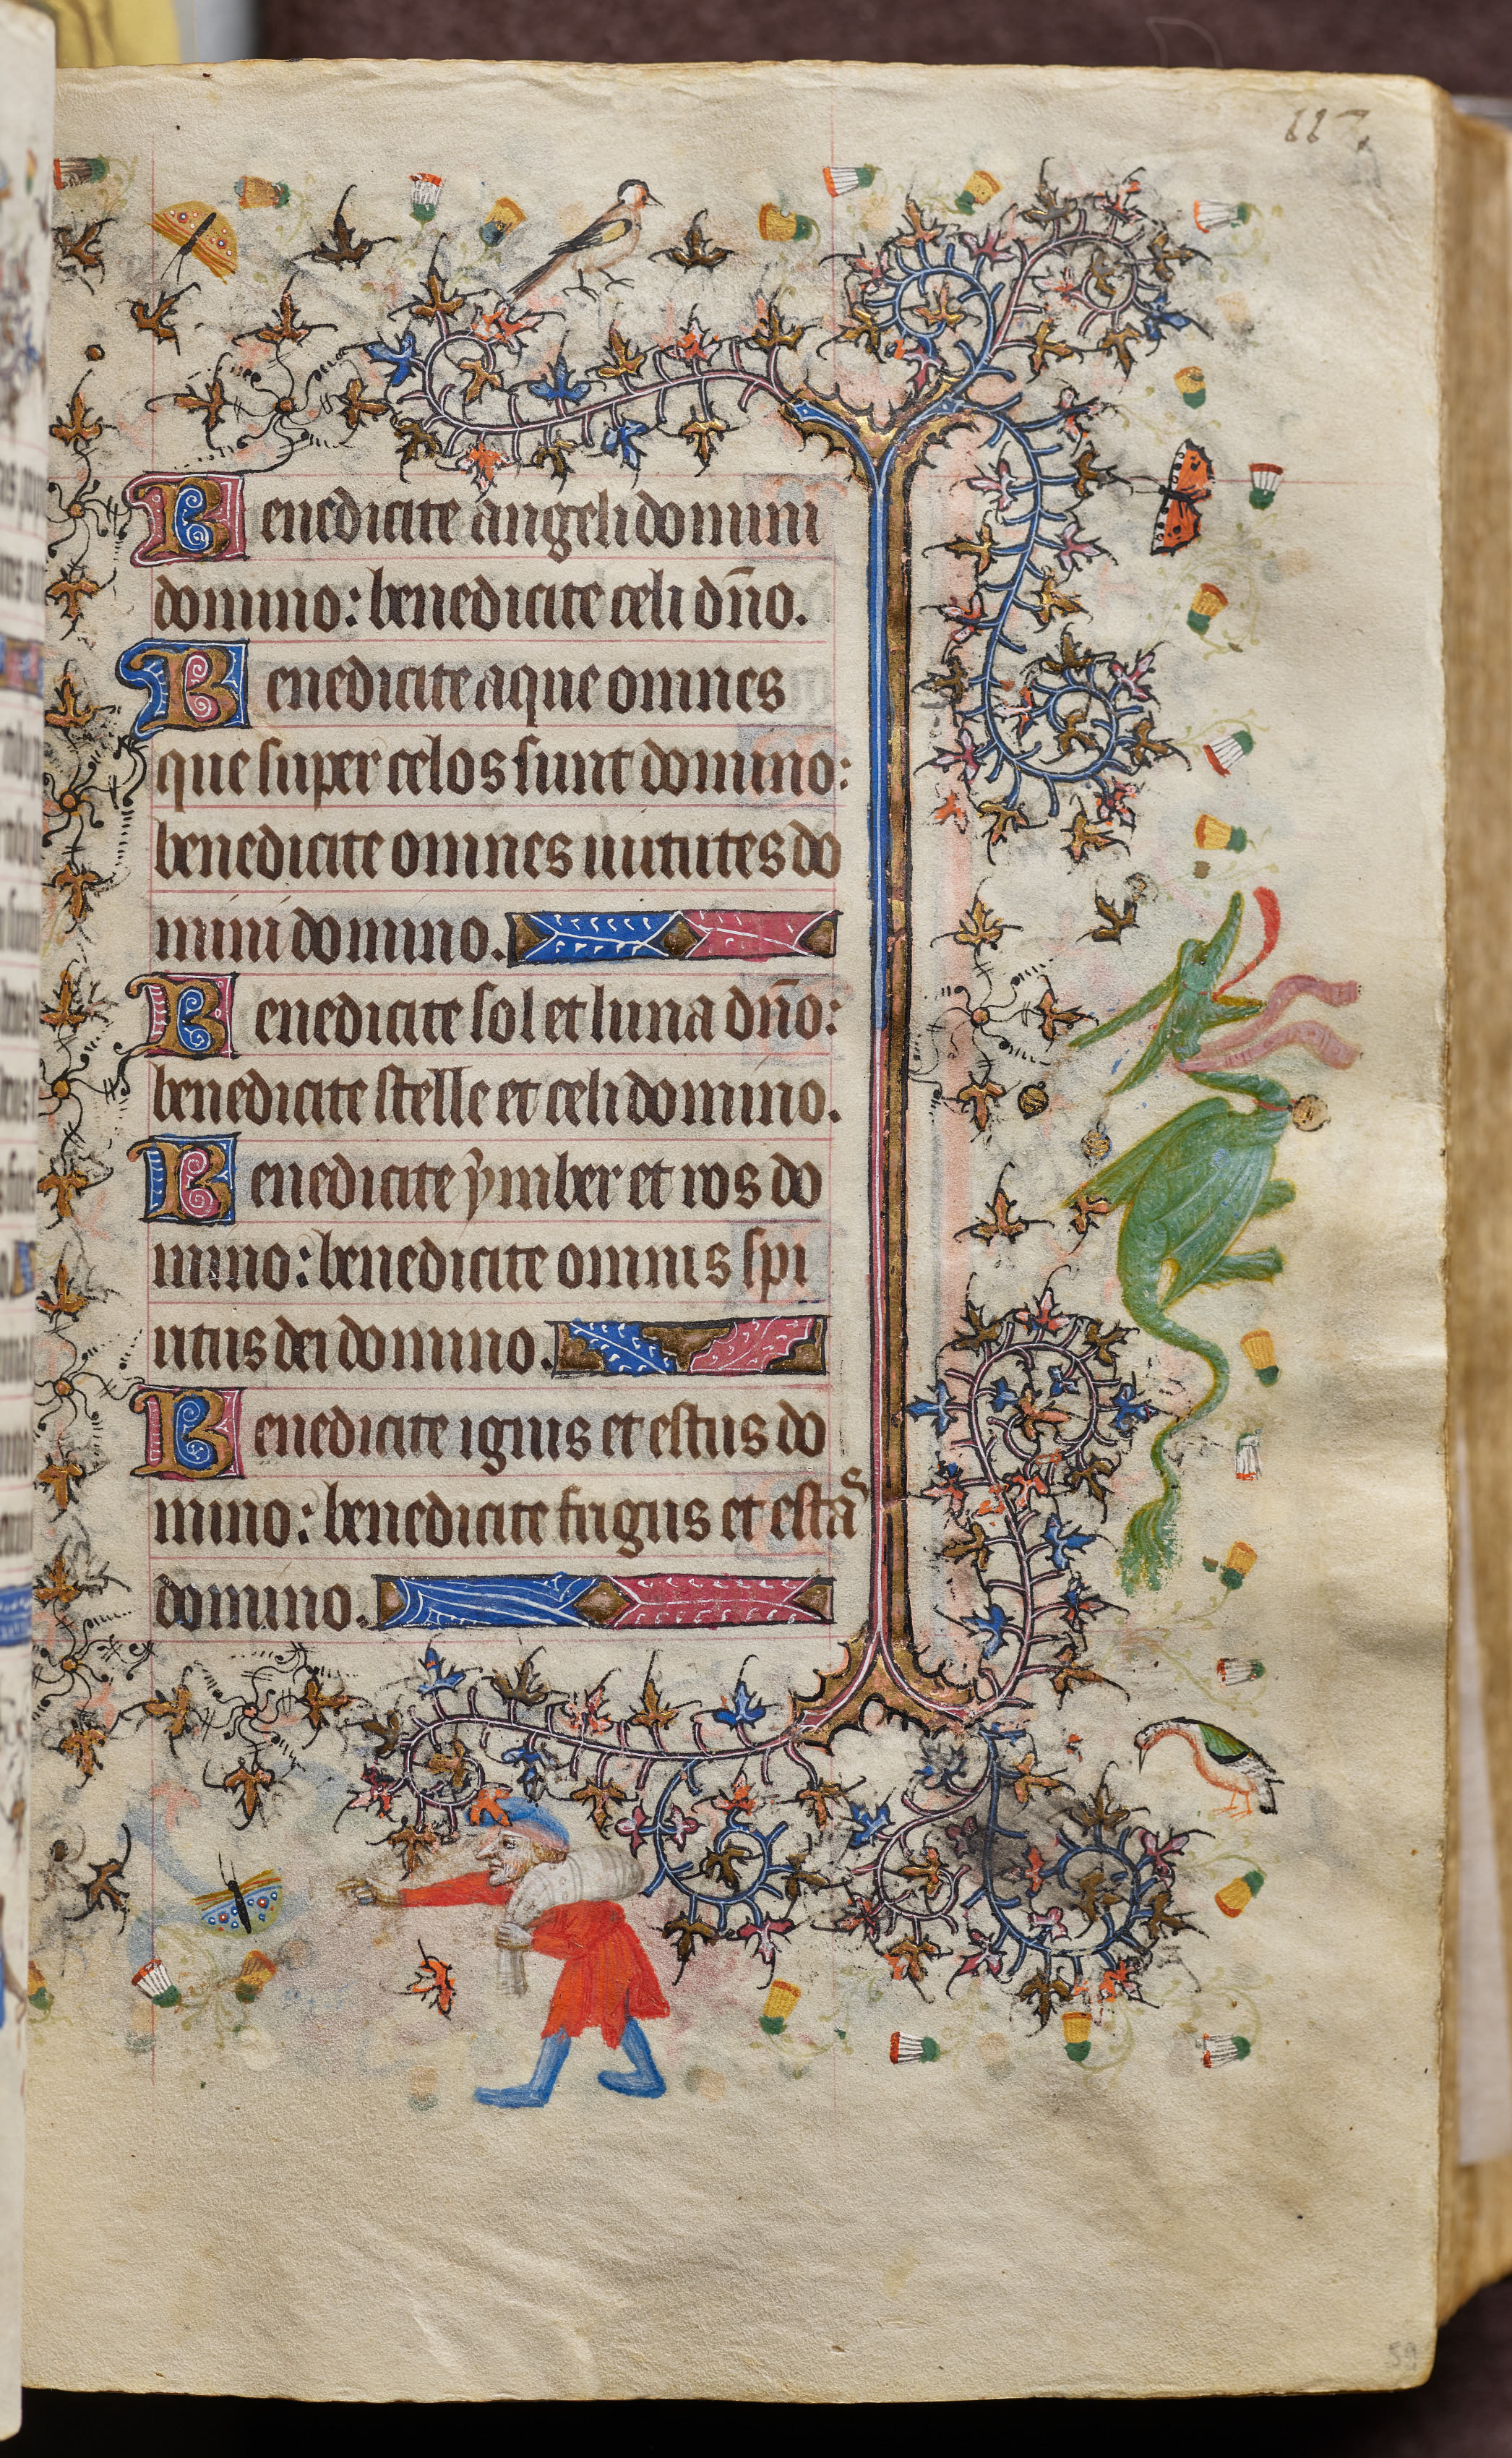 117
Benedicite angeli domini
domino: benedicite celi dño.
Benedicite aque omnes
que super celos sunt domino:
benedicite omnes uirtutes do
mini domino.
Benedicite sol et luna dño:
benedicite stelle et celi domino.
Benedicite ymber et ros do
mino: benedicite omnis spi
ritus dei domino.
Benedicite ignis et estus do
mino: benedicite frigus et estaˢ
domino.
59